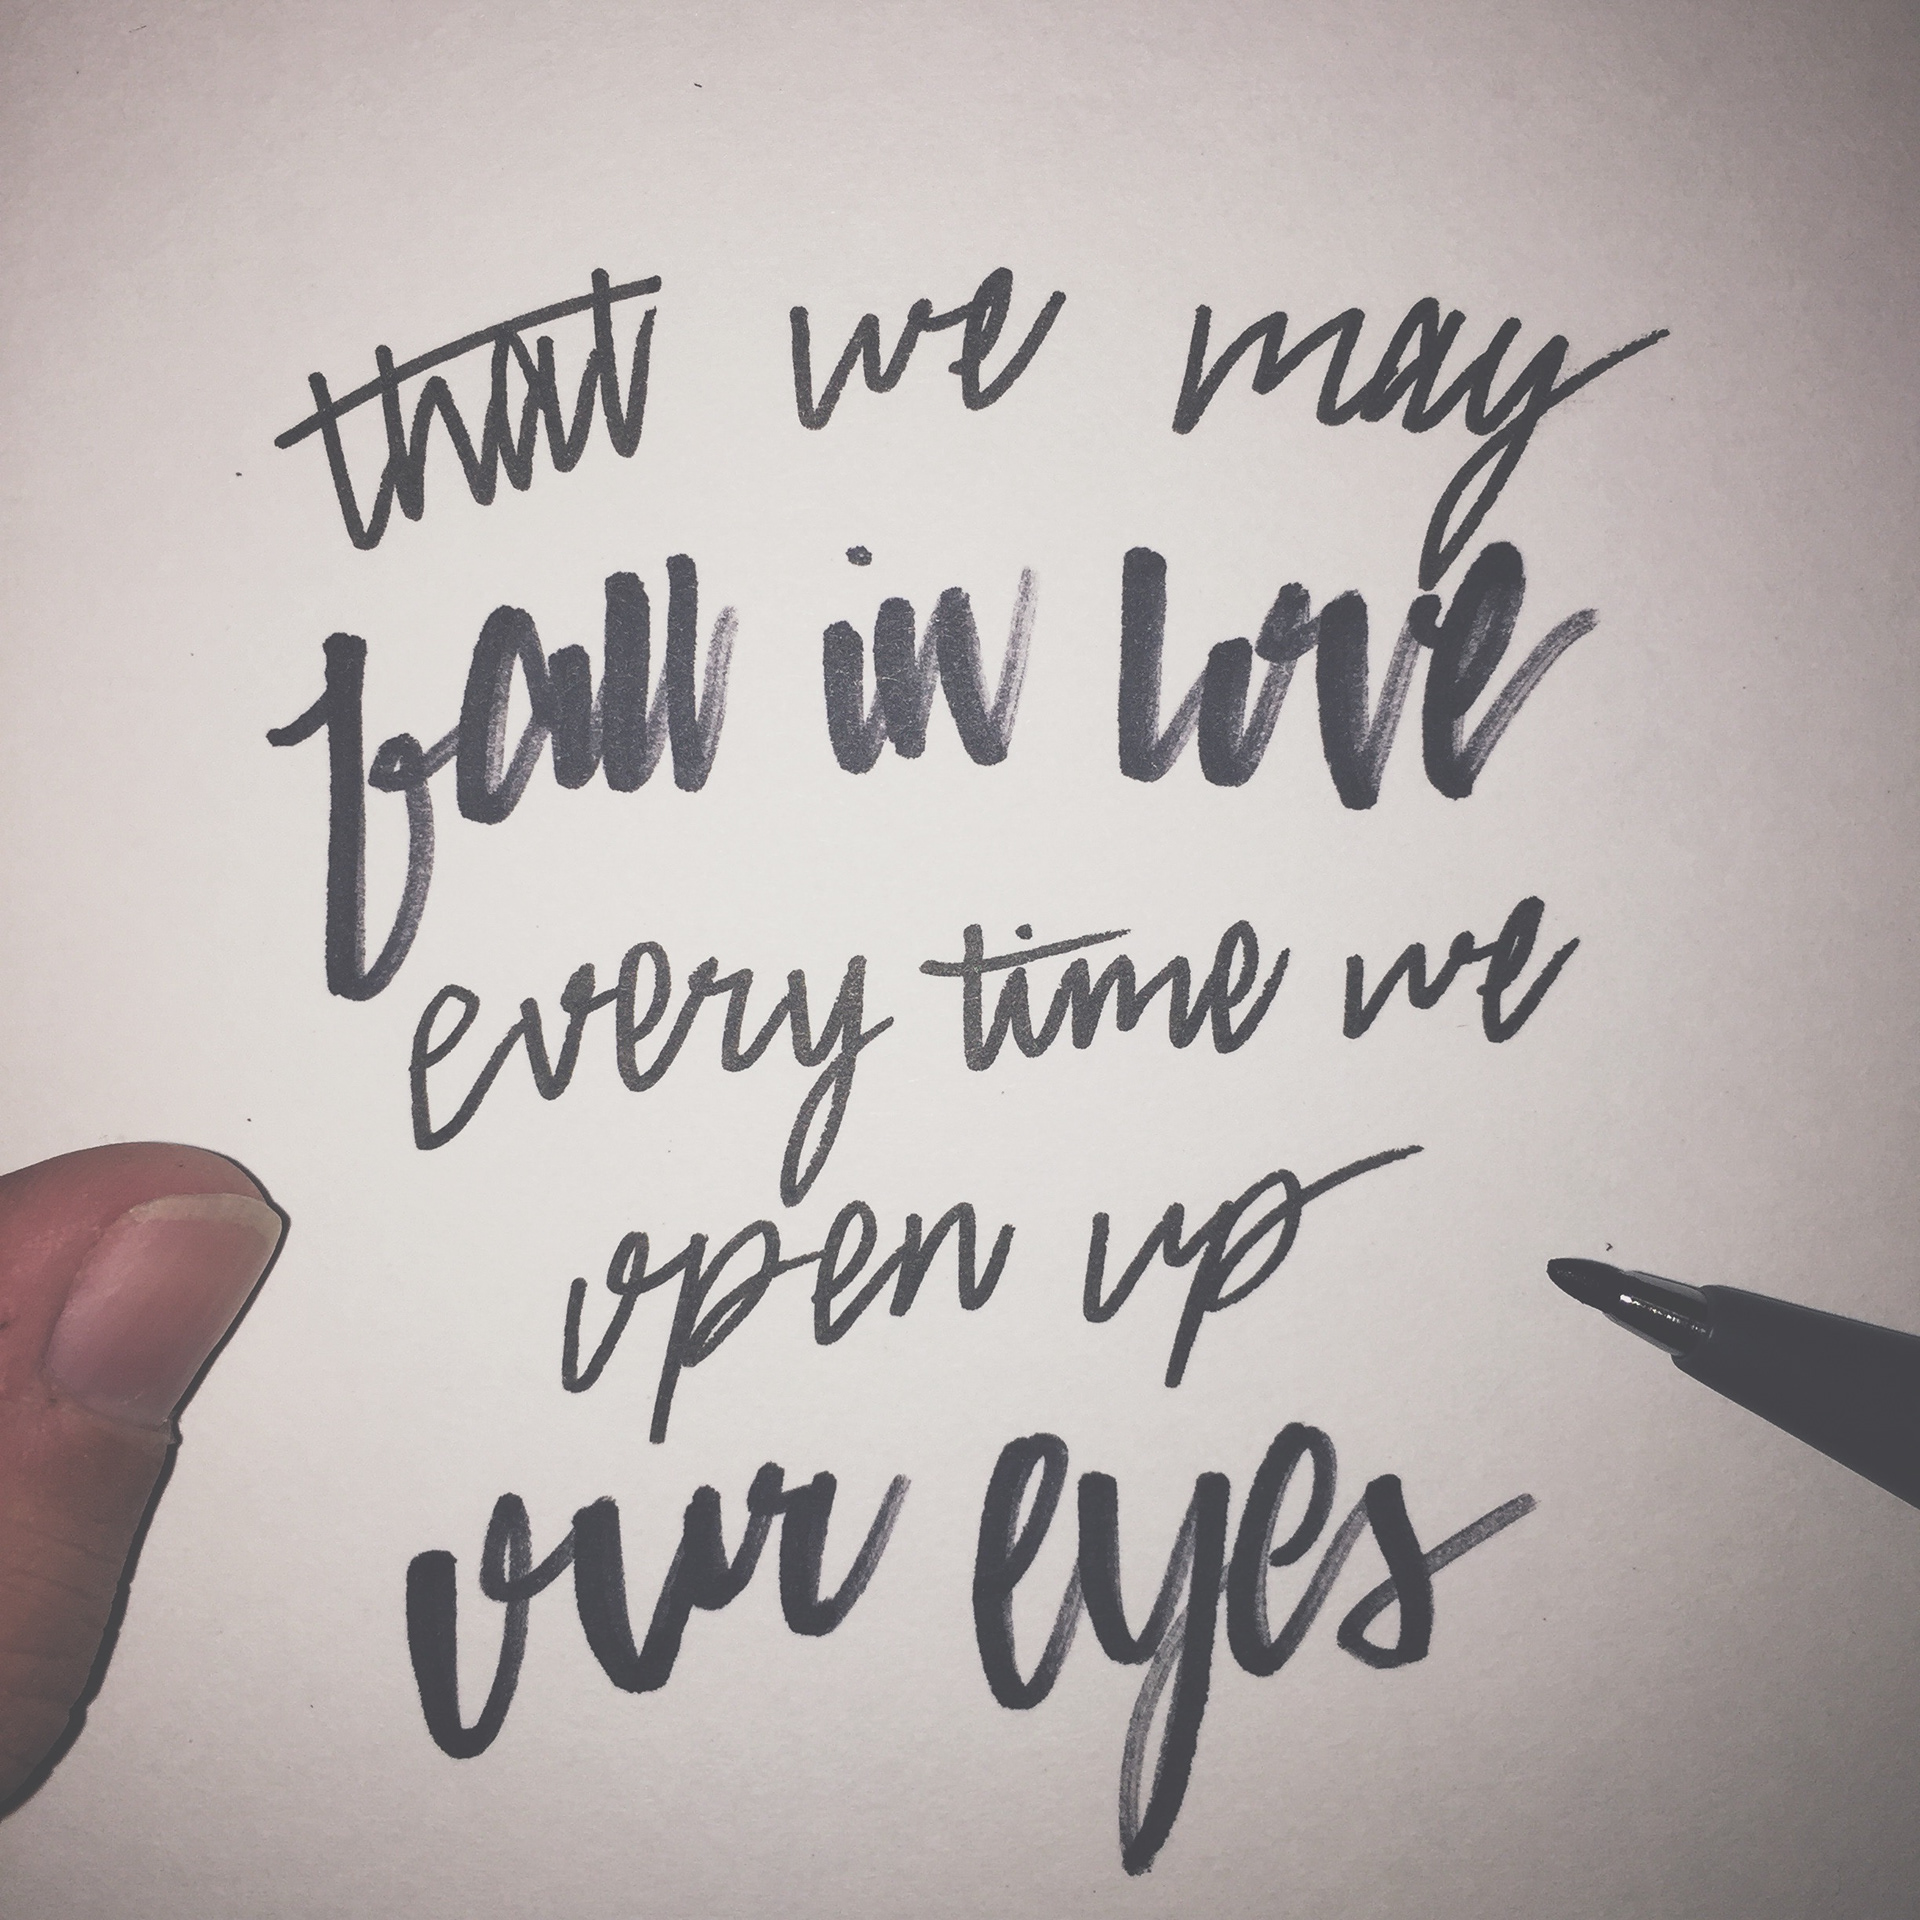 that we may
fall in love
every time we
open up
our eyes